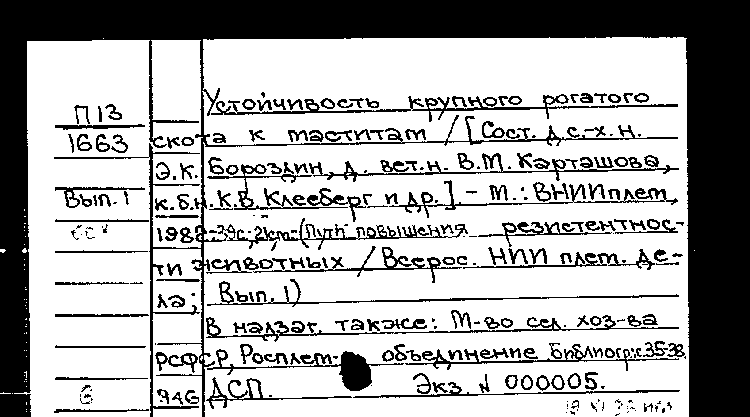 П13
1663
Вып. 1
Устойчивость крупного рогатого
скота к маститам / [Сост. д.с.-х.н.
Э.К. Бороздин, д. вет.н. В.М. Карташова,
к.б.н. К.В. Клееберг и др.]. - М.: ВНИИплем,
1982.-39с.; 2km-(Пути повышения резистентнос-
ти животных / Всерос. НИИ плем. де-
ла; Вып. 1)
В надзаг. также: М-во сел. хоз-ва
РСФСР, Росплем- объединение Библиогр: с.35-38
6 946 ДСП. Экз. N 000005.